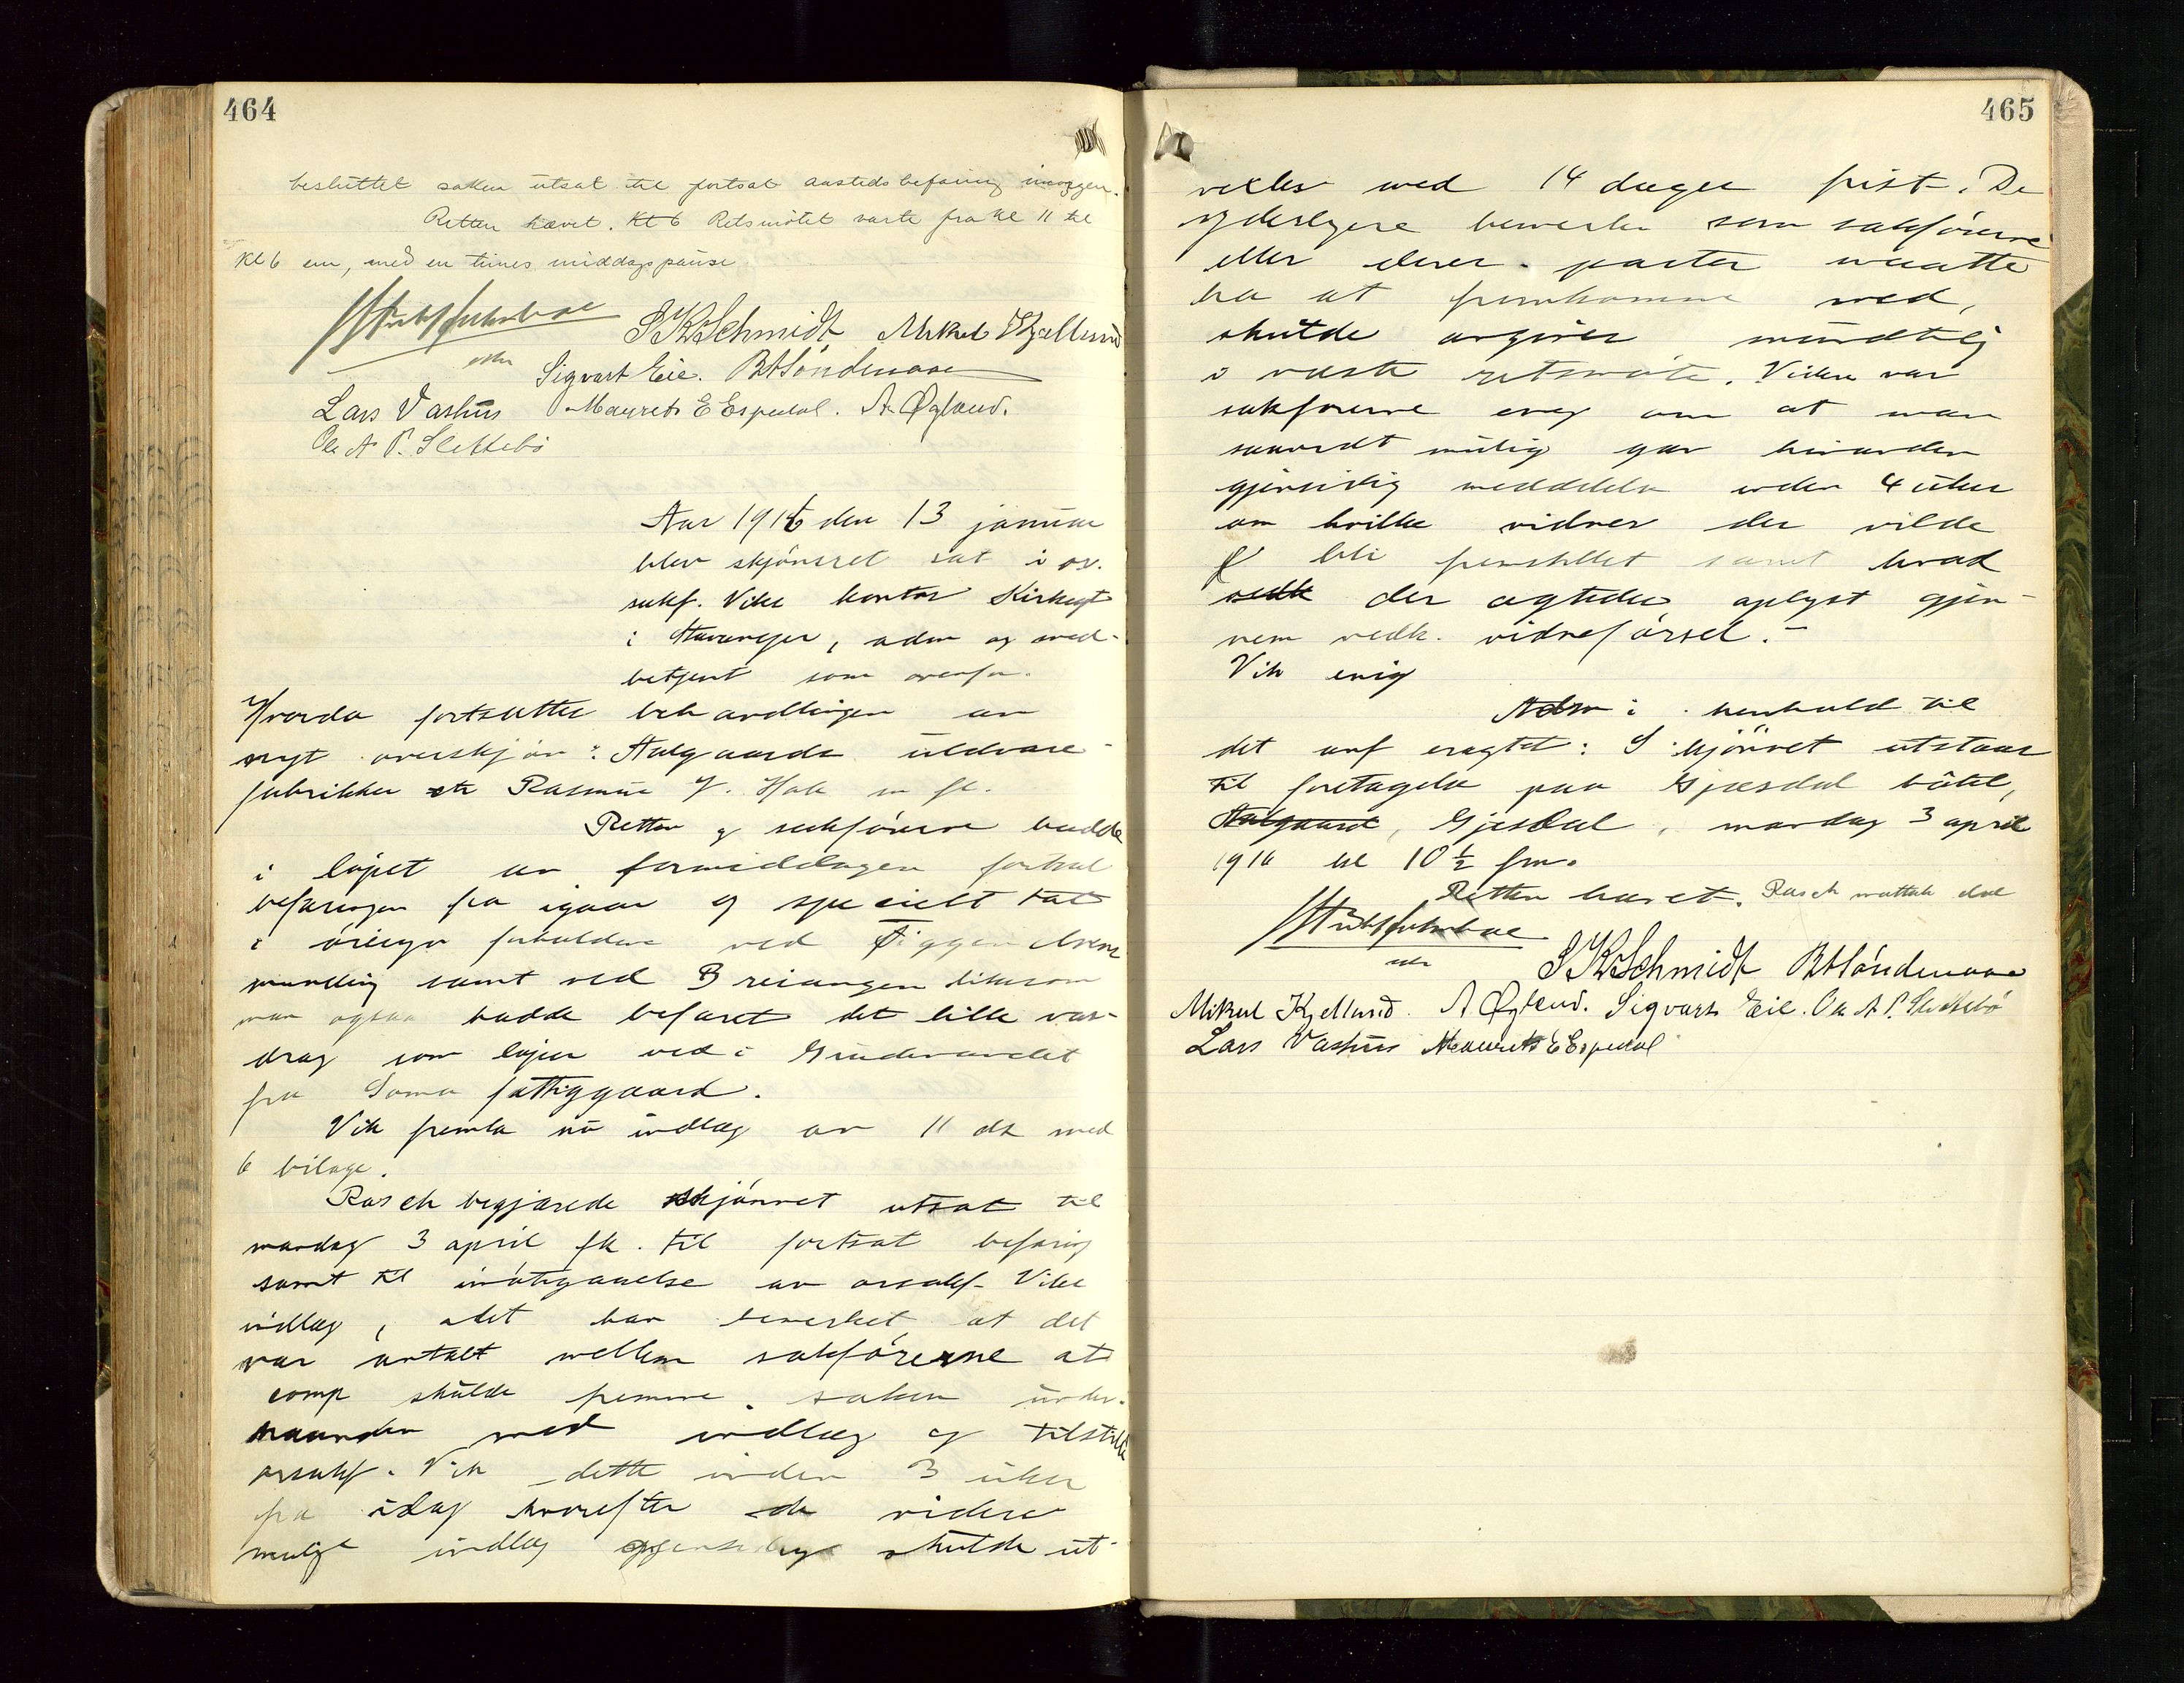 464
besluttet saken utsat til fortsat aastedsbefaring imorgen.
Retten hævet. Kl 6 Retsmötet varte fra kl 11 til
kl 6 em, med en times middagspause.
S K Schmidt Mikal Kjelland
Sigvart Eie. B H Söndenaa
Lars Vashus Maurets E Espedal. A. Øgland.
Ole A P. Slettebö
Aar 1916 den 13 januar
blev skjönsret sat i or.
sakf. Viks kontor Kirkegt
i Stavanger, adm og med-
betjent som ovenfor.
Hvorda fortsattes behandlingen av
nyt overskjön: Aalgaards uldvare-
fabrikker Rasmus H. m fl.
Retten og sakförerne hadde
i löpet av formiddagen fortsat
befaringen fra igaar og specielt tat
i öiesyn forholdene ved Figgenelvens
munding samt ved Breiangen likesom
man ogsaa hadde befaret det lille vas-
drag som löper ved i Grudevandet
fra Soma fattiggaard.
Vik fremla nu indlæg av 11 ds med
6 bilage.
Rasch begjærede skjönnet utsat til
mandag 3 april fk. til fortsat befaring
samt til imötegaaelse av orsakf. Viks
indlæg, idet han bemerket at det
var avtalt mellem sakförerne at
comp skulde fremme saken under-
haanden med indlæg og tilstille
orsakf. Vik dette inden 3 uker
fra idag hvorefter de videre
mulige indlæg gjensidige skulde ut-
465
veksles med 14 dages frist. De
yderligere bemerkn som sakförerne
eller deres parter maatte
ha at fremkomme med,
skulde avgives mundtlig
i næste retsmöte. Videre var
sakförerne enig om at man
saavidt mulig gav hinanden
gjensidig meddelelse inden 4 uker
om hvilke vidner der vilde
bli fremstillet samt hvad
der agtedes oplyst gjen-
nem vedk. vidneförsel.-
Vik enig
Adm i henhold til
det anf eragtet: Skjönnet utstaar
til foretagelse paa Gjesdal hôtel,
Aalgaard, Gjesdal, mandag 3 april
1916 kl 10 ½ fm.
Retten hævet. Rasch mottok del
S K Schmidt B H Söndenaa
Mikal Kjelland. A Øgland. Sigvart Eie. Ole A P. Slettebö
Lars Vashus Maurets E Espedal